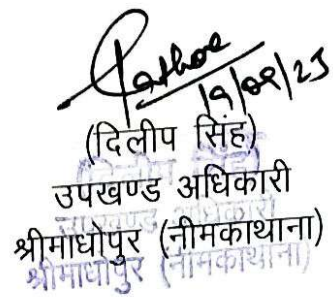 Rathore
19/09/25
(दिलीप सिंह)
उपखण्ड अधिकारी
श्रीमाधोपुर (नीमकाथाना)
(दिलीप सिंह)
उपखण्ड अधिकारी
श्रीमाधोपुर (नीमकाथाना)